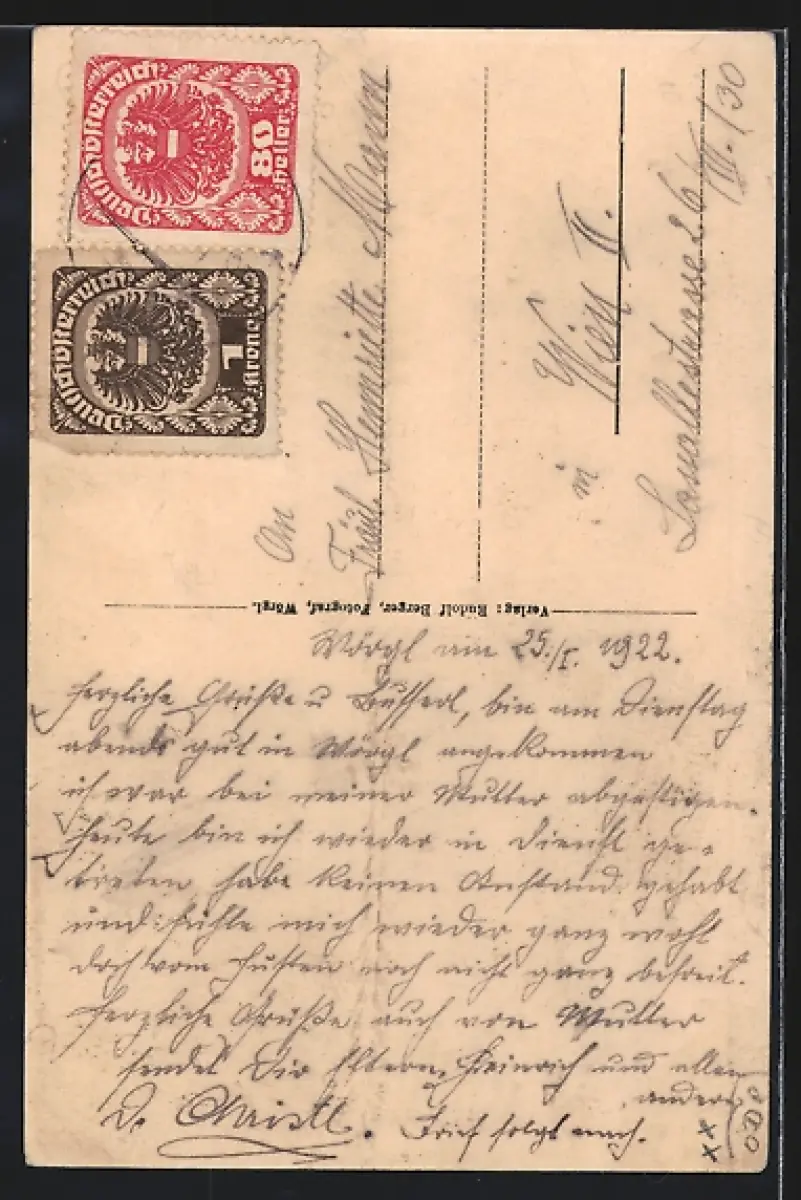 Deutschösterreich
80
Heller
Deutschösterreich
1
Krone
An
Fräul. Henriette Mann
in Wien II.
Lassallestrasse 26/III./30
Verlag: Rudolf Berger, Fotograf, Wörgl.
Wörgl am 25./I. 1922.
Herzliche Grüße u Busserl, bin am Dienstag
abends gut in Wörgl angekommen
ich war bei meiner Mutter abgestigen.
Heute bin ich wieder in Dienst ge-
treten habe keinen Anstand gehabt
und fühle mich wieder ganz wohl
doch vom Husten noch nicht ganz befreit.
Herzliche Grüße auch von Mutter
sendet Dir Eltern, Heinrich und allen
andern
D. Christl. Brief folgt nach.